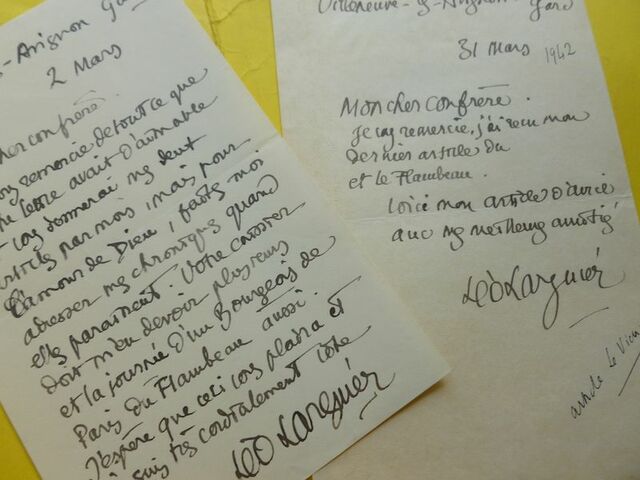 s-Avignon Gard
2 Mars
cher confrère.
vous remercie de tout ce que
lettre avait d'aimable
vous donnerai mes deux
articles par mois, mais pour
l'amour de Dieu, faites moi
adresser mes chroniques quand
elles paraissent. Votre caissier
doit m'en devoir plusieurs
et la journée d'un Bourgeois de
Paris du Flambeau aussi.
J'espère que ceci vous plaira et
suis très cordialement vôtre
Léo Larguier
Villeneuve-lz-Avignon Gard
31 Mars 1942
Mon cher confrère.
Je vous remercie, j'ai reçu mon
dernier article du
et le Flambeau.
Voici mon article d'avril
avec mes meilleures amitiés
Léo Larguier
article Le Vieux